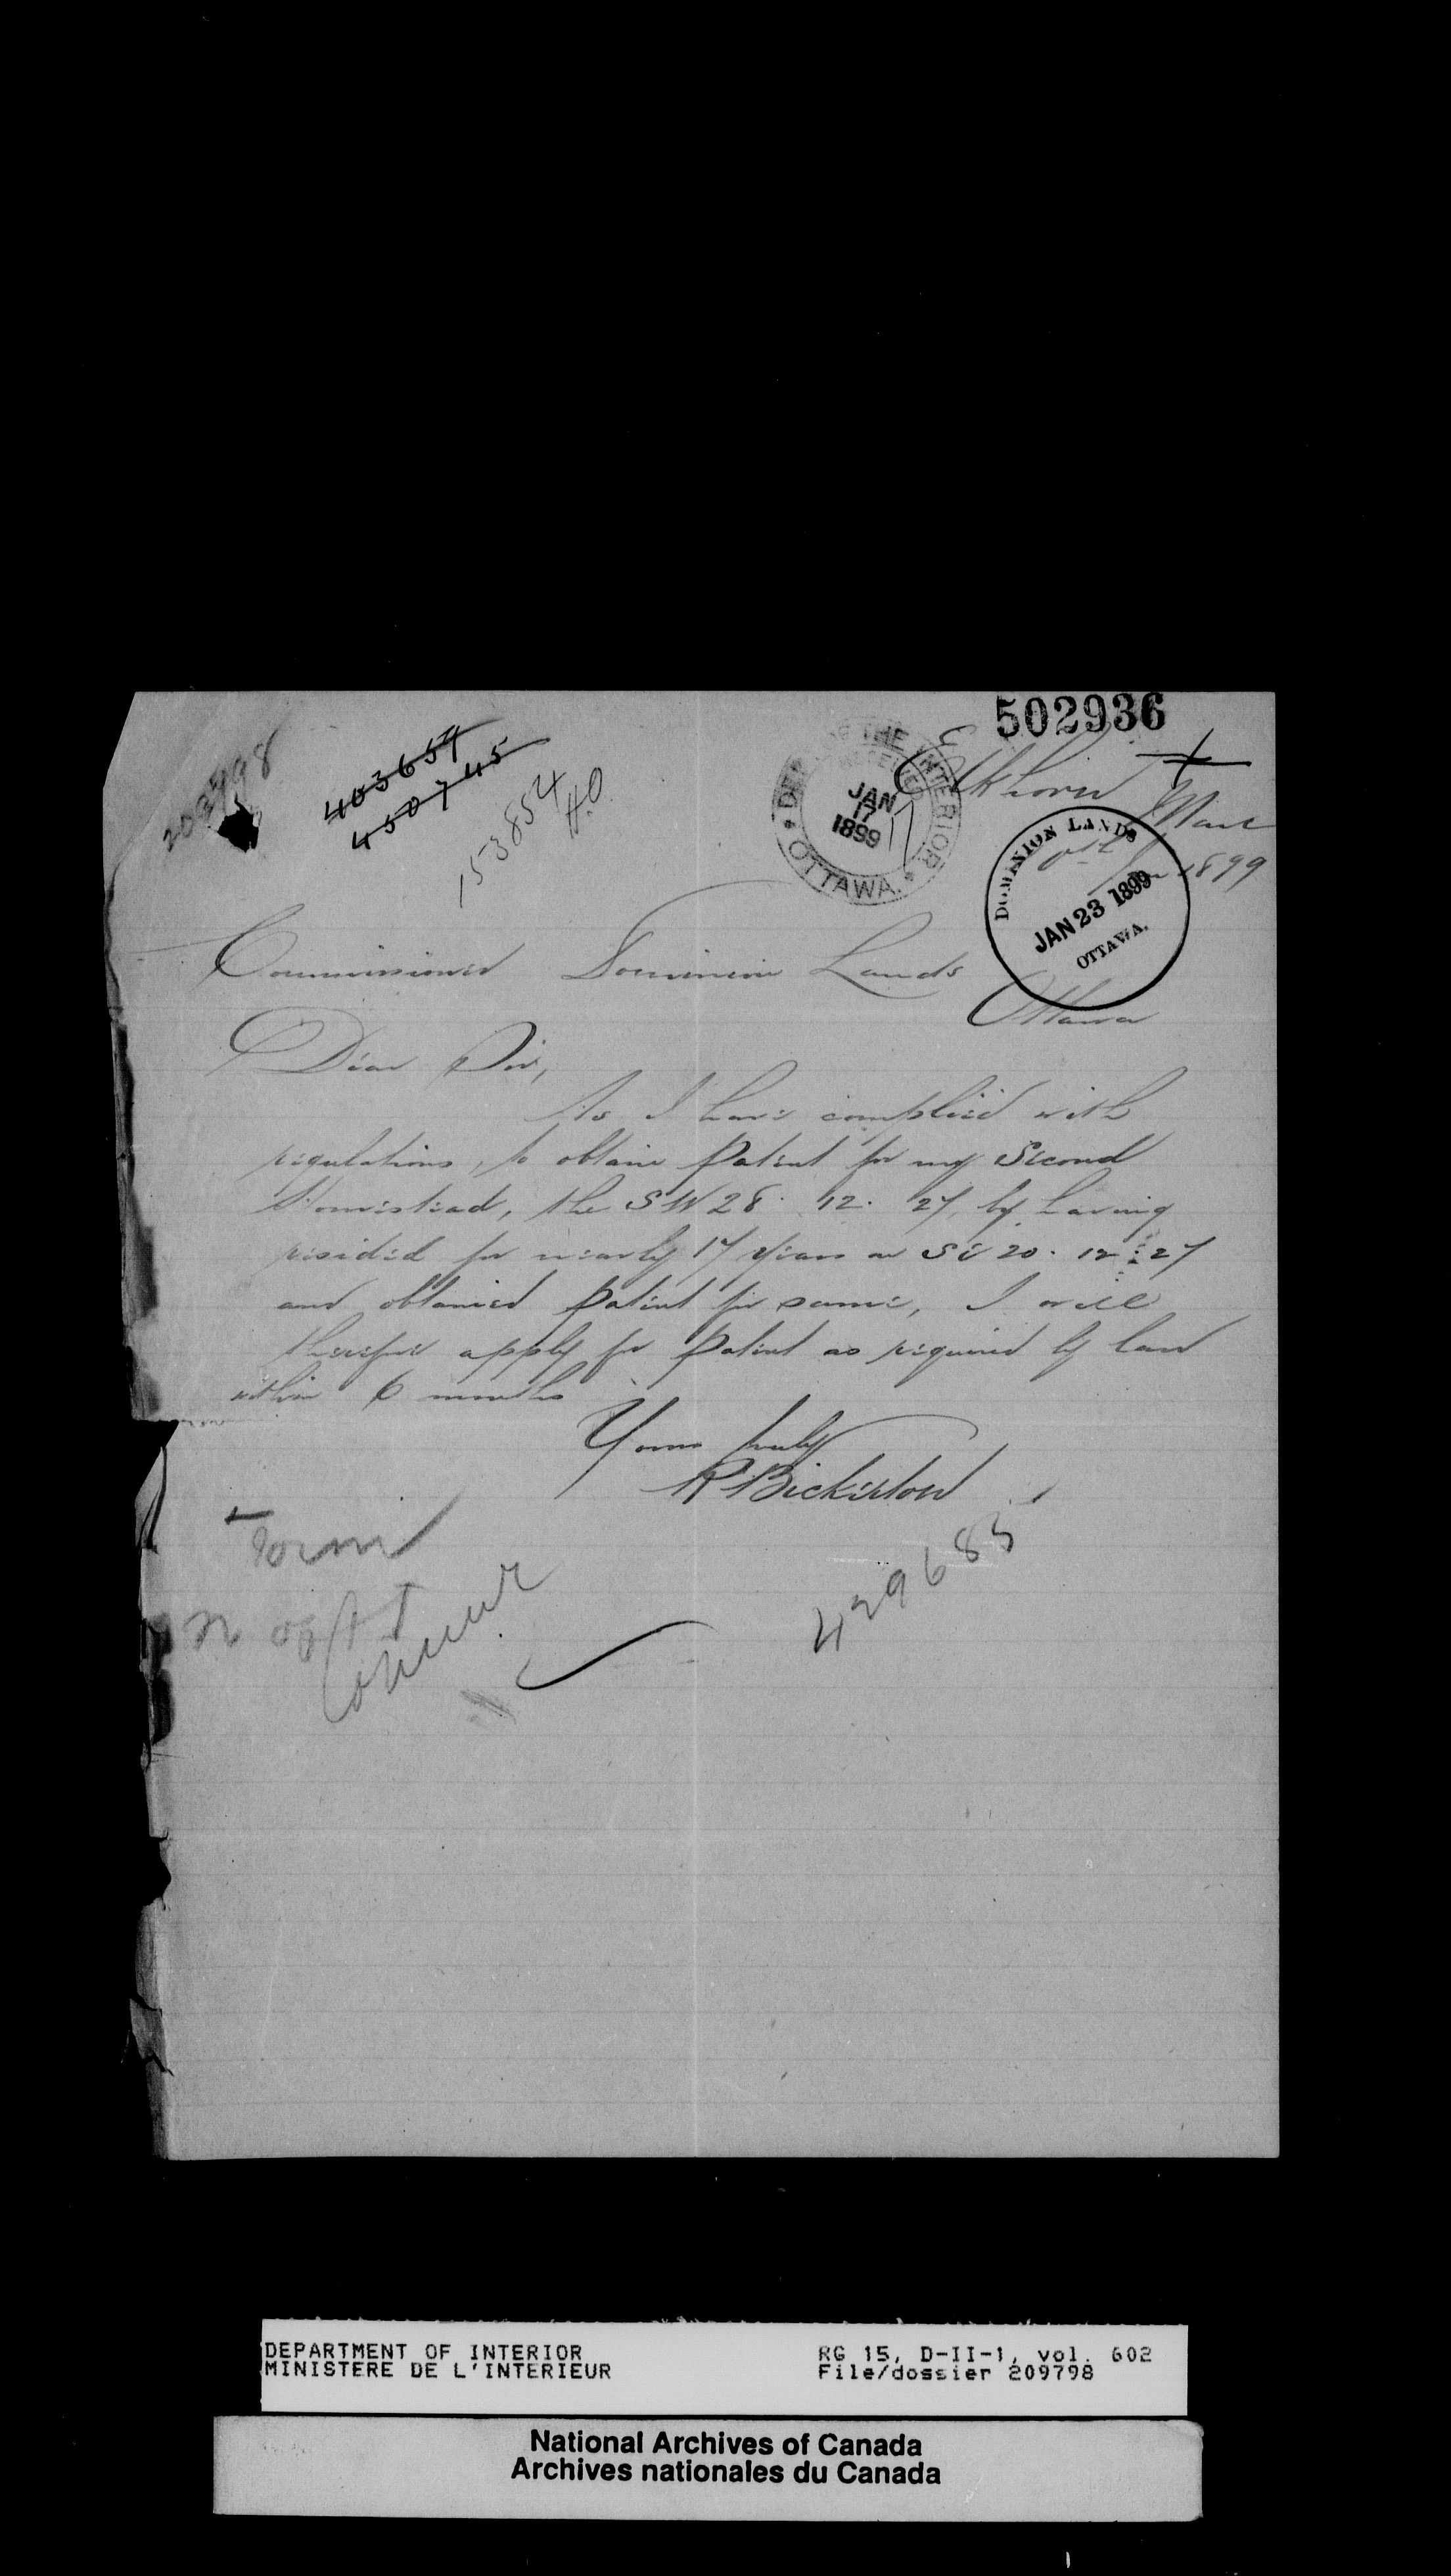 502936
209798
403659
450745
153854
H.O.
DEPT OF THE INTERIOR
RECEIVED
JAN
17
1899
17
OTTAWA
Elkhorn Man
Jan 1899
DOMINION LANDS
JAN 23 1899
OTTAWA.
Commissioner Dominion Lands
Ottawa
Dear Sir,
As I have complied with
regulations, to obtain Patent for my Second
Homestead, the SW 28. 12. 27, by having
resided for nearly 17 years on SE 20. 12. 27
and obtained Patent for same, I will
therefore apply for Patent as required by law
within 6 months
Yours truly
R Bickerton
429683
DEPARTMENT OF INTERIOR
MINISTERE DE L'INTERIEUR
RG 15, D-II-1, vol. 602
File/dossier 209798
National Archives of Canada
Archives nationales du Canada